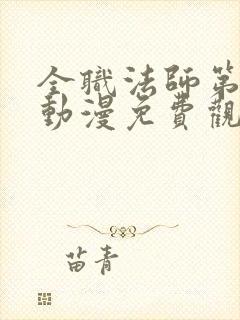 全職法師第
動漫免費觀
苗青